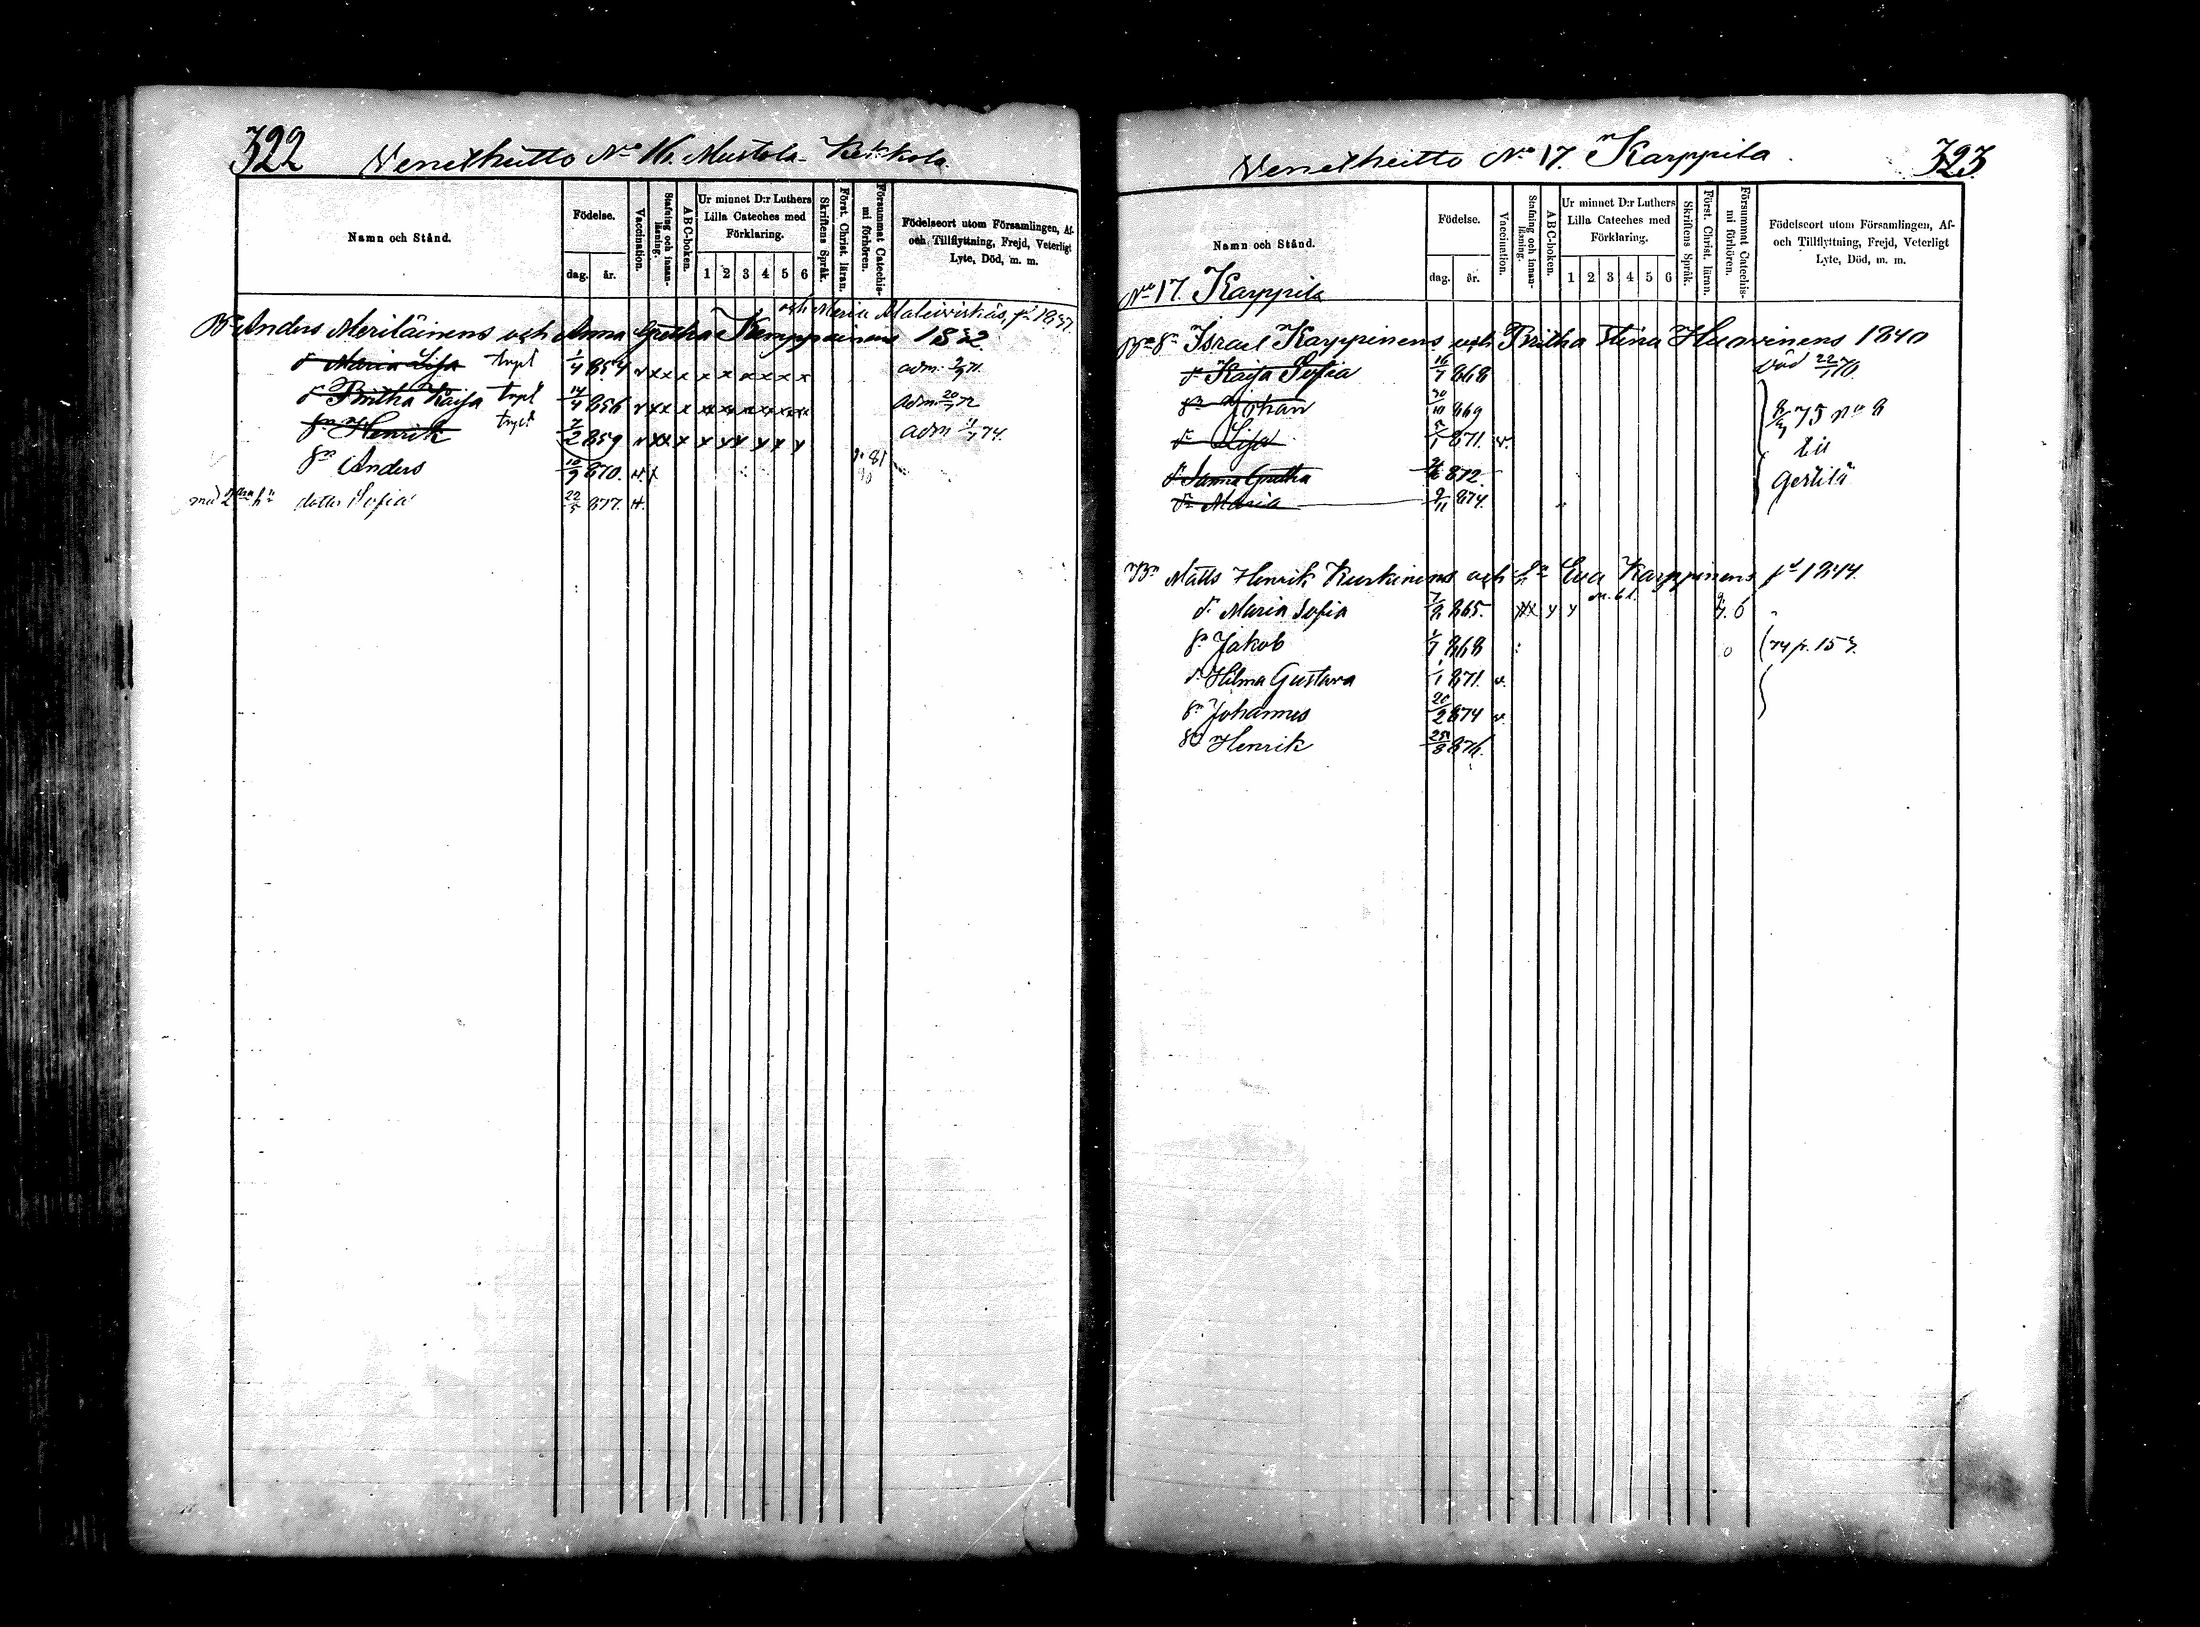 322 Venetheitto No 16. Mustola Kekkola
Namn och Stånd.
Födelse.
dag. år.
Vaccination.
Stafning och innanläsning.
ABC-boken.
Ur minnet D:r Luthers Lilla Cateches med Förklaring.
1 2 3 4 5 6
Skriftens Språk.
Förſt. Christ. läran.
Försummat Catechismi förhören.
Födelseort utom Församlingen, Af- och Tillflyttning, Frejd, Veterligt Lyte, Död, m. m.
och Maria Malviniskäs, fd 1837.
Bn Anders Meriläinens och Anna Gretha Kemppainens 1832
dr Maria Lisa trypt 1/4 854 v xx x x x x x x x adm. 71
dr Britha Kaisa trypt 14/4 856 v xx x xx x x x x x adm 20/7 72
sn Henrik trypt 7/2 859 v xx x x x x x x x adm 74
sn Anders 10/9 870. v. x 81
med 2dra h. dotter Sofia 22/5 877. v.
Venetheitto No 17. Karppila 323
Namn och Stånd.
Födelse.
dag. år.
Vaccination.
Stafning och innanläsning.
ABC-boken.
Ur minnet D:r Luthers Lilla Cateches med Förklaring.
1 2 3 4 5 6
Skriftens Språk.
Förſt. Christ. läran.
Försummat Catechismi förhören.
Födelseort utom Församlingen, Af- och Tillflyttning, Frejd, Veterligt Lyte, Död, m. m.
No 17. Karppila
Bn sn Israel Karppinens och Britha Stina Huovinens 1840
dr Kaisa Sofia 16/7 868 död 22/1 70.
sn Johan 30/10 869
dr Lisa 5/1 871. v. 8/3 75 no 8
till
dr Anna Gretha 872. Gertilä
dr Maria 9/11 874.
Bn Matts Henrik Kurkinens och h. Eva Karppinens fd 1844.
dr Maria Sofia 7/8 865. xx x x
sn Jakob 1/7 868 74 p. 153.
dr Hilma Gustava 1/1 871. v.
sn Johannes 20/2 874 v.
sn Henrik 25/8 876.